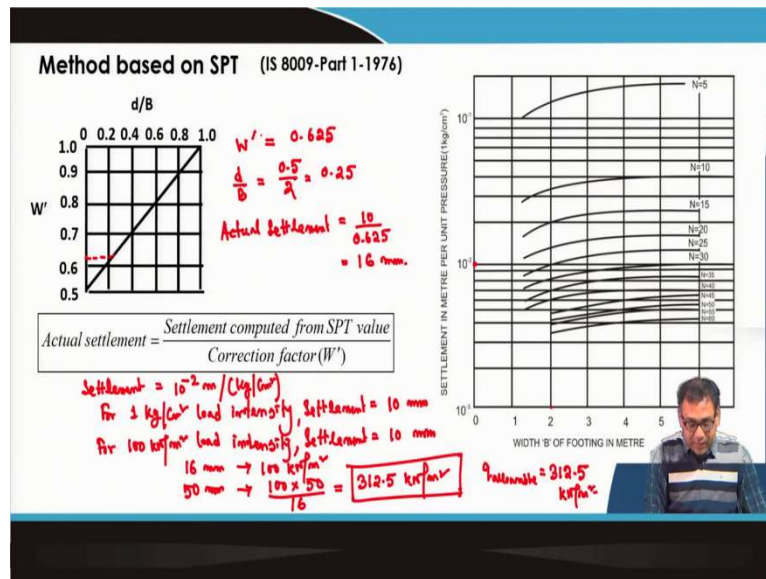 Method based on SPT (IS 8009-Part 1-1976)
d/B
0 0.2 0.4 0.6 0.8 1.0
1.0
0.9
0.8
0.7
0.6
0.5
W'
W' = 0.625
d/B = 0.5/2 = 0.25
Actual Settlement = 10/0.625
= 16 mm.
Actual settlement = Settlement computed from SPT value / Correction factor (W')
Settlement = 10⁻² m / (kg/cm²)
For 1 kg/cm² load intensity, Settlement = 10 mm
For 100 kN/m² load intensity, Settlement = 10 mm
16 mm → 100 kN/m²
50 mm → 100 x 50 / 16 = 312.5 kN/m²
q allowable = 312.5
kN/m²
SETTLEMENT IN METRE PER UNIT PRESSURE(1kg/cm²)
10⁻¹
10⁻²
N=5
N=10
N=15
N=20
N=25
N=30
N=35
N=40
N=45
N=50
N=60
0 1 2 3 4 5
WIDTH 'B' OF FOOTING IN METRE